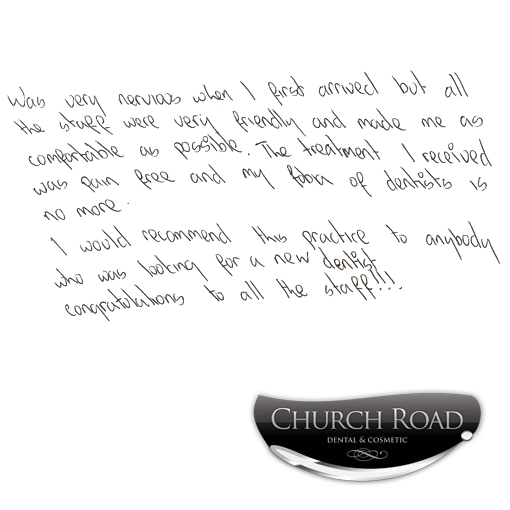 Was very nervious when I first arrived but all
the staff were very friendly and made me as
comfortable as possible. The treatment I received
was pain free and my fobia of dentists is
no more.
I would recommend this practice to anybody
who was looking for a new dentist
congratulations to all the staff!!!
CHURCH ROAD
DENTAL & COSMETIC